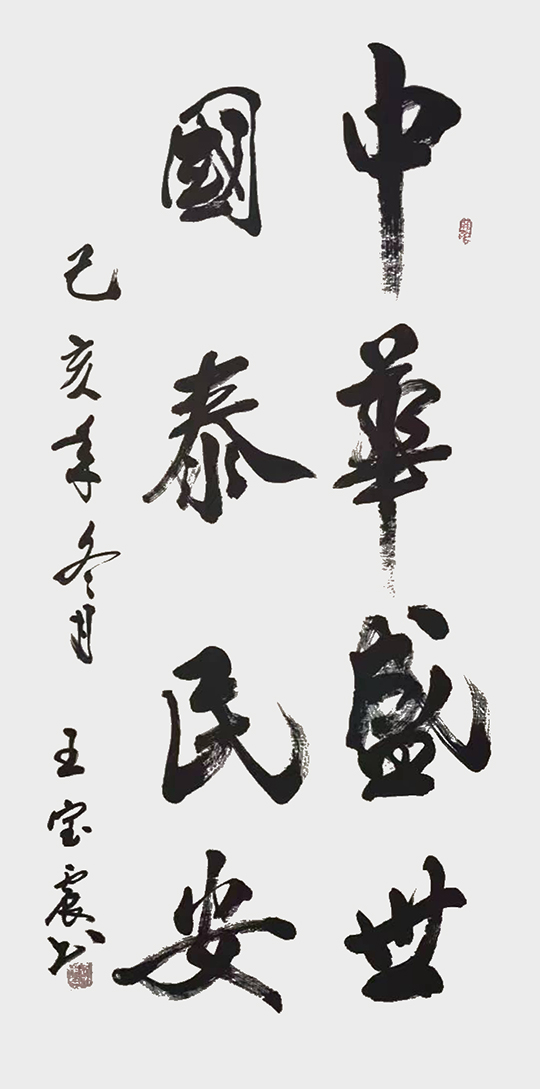 中華盛世
國泰民安
己亥年冬月 王宝震书